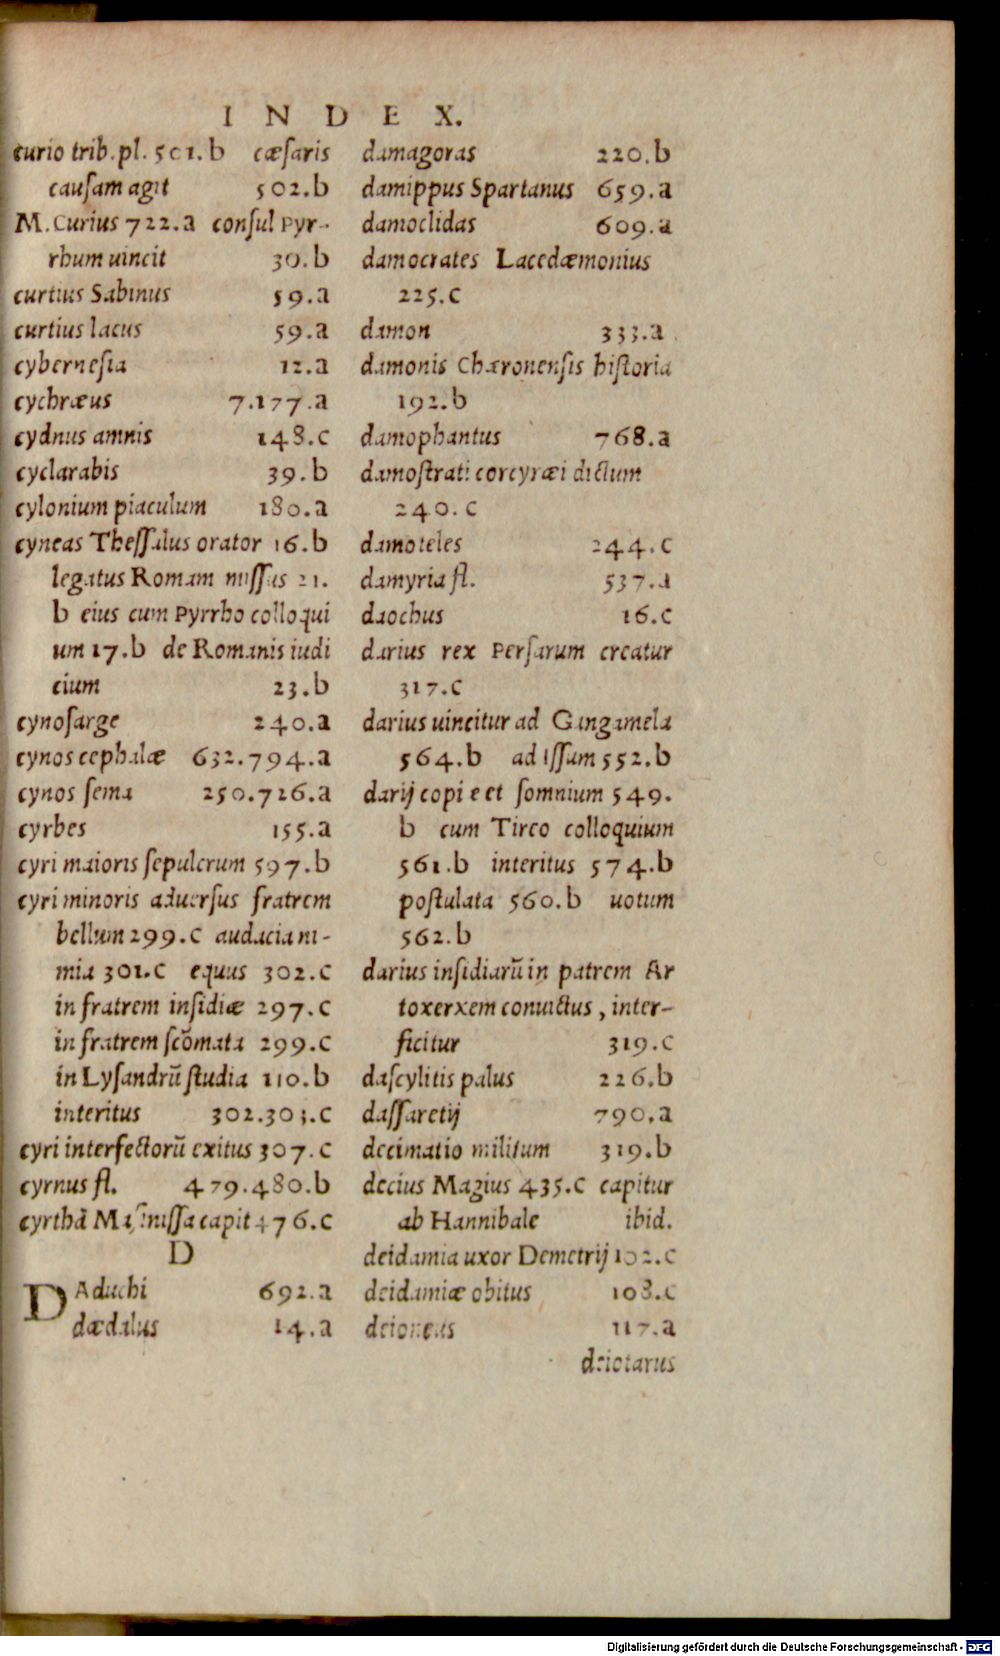 INDEX.
curio trib.pl. 501.b cæſaris
cauſam agit 502.b
M. Curius 722.a conſul Pyr-
rhum uincit 30.b
curtius Sabinus 59.a
curtius lacus 59.a
cyberneſia 12.a
cychræus 7.177.a
cydnus amnis 148.c
cyclarabis 39.b
cylonium piaculum 180.a
cyneas Theſſalus orator 16.b
legatus Romam miſſus 21.
b eius cum Pyrrho colloqui
um 17.b de Romanis iudi
cium 23.b
cynoſarge 240.a
cynos cephalæ 632.794.a
cynos ſema 250.726.a
cyrbes 155.a
cyri maioris ſepulcrum 597.b
cyri minoris aduerſus fratrem
bellum 299.c audacia ni-
mia 301.c equus 302.c
in fratrem inſidiæ 297.c
in fratrem ſcõmata 299.c
in Lyſandrũ ſtudia 110.b
interitus 302.303.c
cyri interfectorũ exitus 307.c
cyrnus fl. 479.480.b
cyrthã Maſiniſſa capit 476.c
D
DAduchi 692.a
dædalus 14.a
damagoras 220.b
damippus Spartanus 659.a
damoclidas 609.a
damocrates Lacedæmonius
225.c
damon 333.a
damonis Chæronenſis hiſtoria
192.b
damophantus 768.a
damoſtrati corcyræi dictum
240.c
damoteles 244.c
damyria fl. 537.a
daochus 16.c
darius rex Perſarum creatur
317.c
darius uincitur ad Gangamela
564.b ad Iſſum 552.b
darij copi e et ſomnium 549.
b cum Tireo colloquium
561.b interitus 574.b
poſtulata 560.b uotum
562.b
darius inſidiarũ in patrem Ar
toxerxem conuictus, inter-
ficitur 319.c
daſcylitis palus 226.b
daſſaretij 790.a
decimatio militum 319.b
decius Magius 435.c capitur
ab Hannibale ibid.
deidamia uxor Demetrij 102.c
deidamiæ obitus 108.c
deioneus 117.a
deiotarus
Digitalisierung gefördert durch die Deutsche Forschungsgemeinschaft - DFG